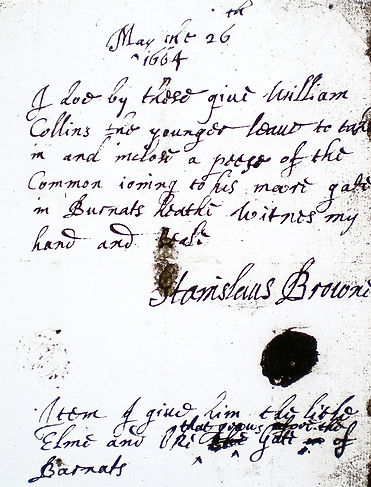 May the 26th
1664
I doe by these give William
Collins the younger leave to take
in and inclose a peese of the
Common ioning to his mare gate
in Burnats heathe witnes my
hand and seale
Stanislaus Browne
Item I give him the little
Elme and that grows above the Gate of
Barnats